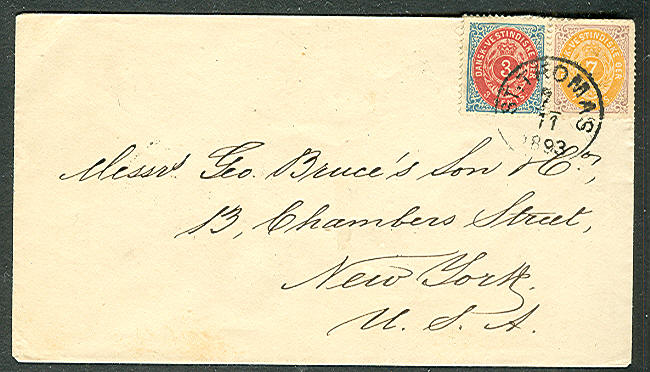 DANSK-VESTINDISKE ØER
3
CENTS
7
ST. THOMAS
11
1893
Messrs. Geo. Bruce's Son & Co.,
13, Chambers Street,
New York.
U. S. A.